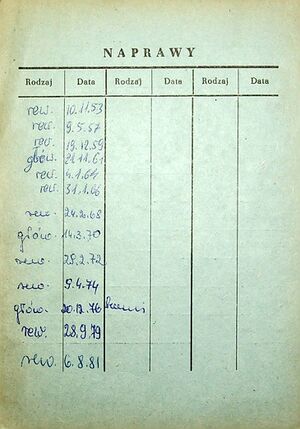 NAPRAWY
Rodzaj Data Rodzaj Data Rodzaj Data
rew. 10.11.53
rew. 9.5.57
rew. 19.12.59
głów. 21.11.61
rew. 4.1.64
rew. 31.1.66
rew. 24.2.68
głów. 14.3.70
rew. 25.2.72
rew. 5.4.74
głów. 20.12.76
rew. 28.9.79
rew. 6.8.81